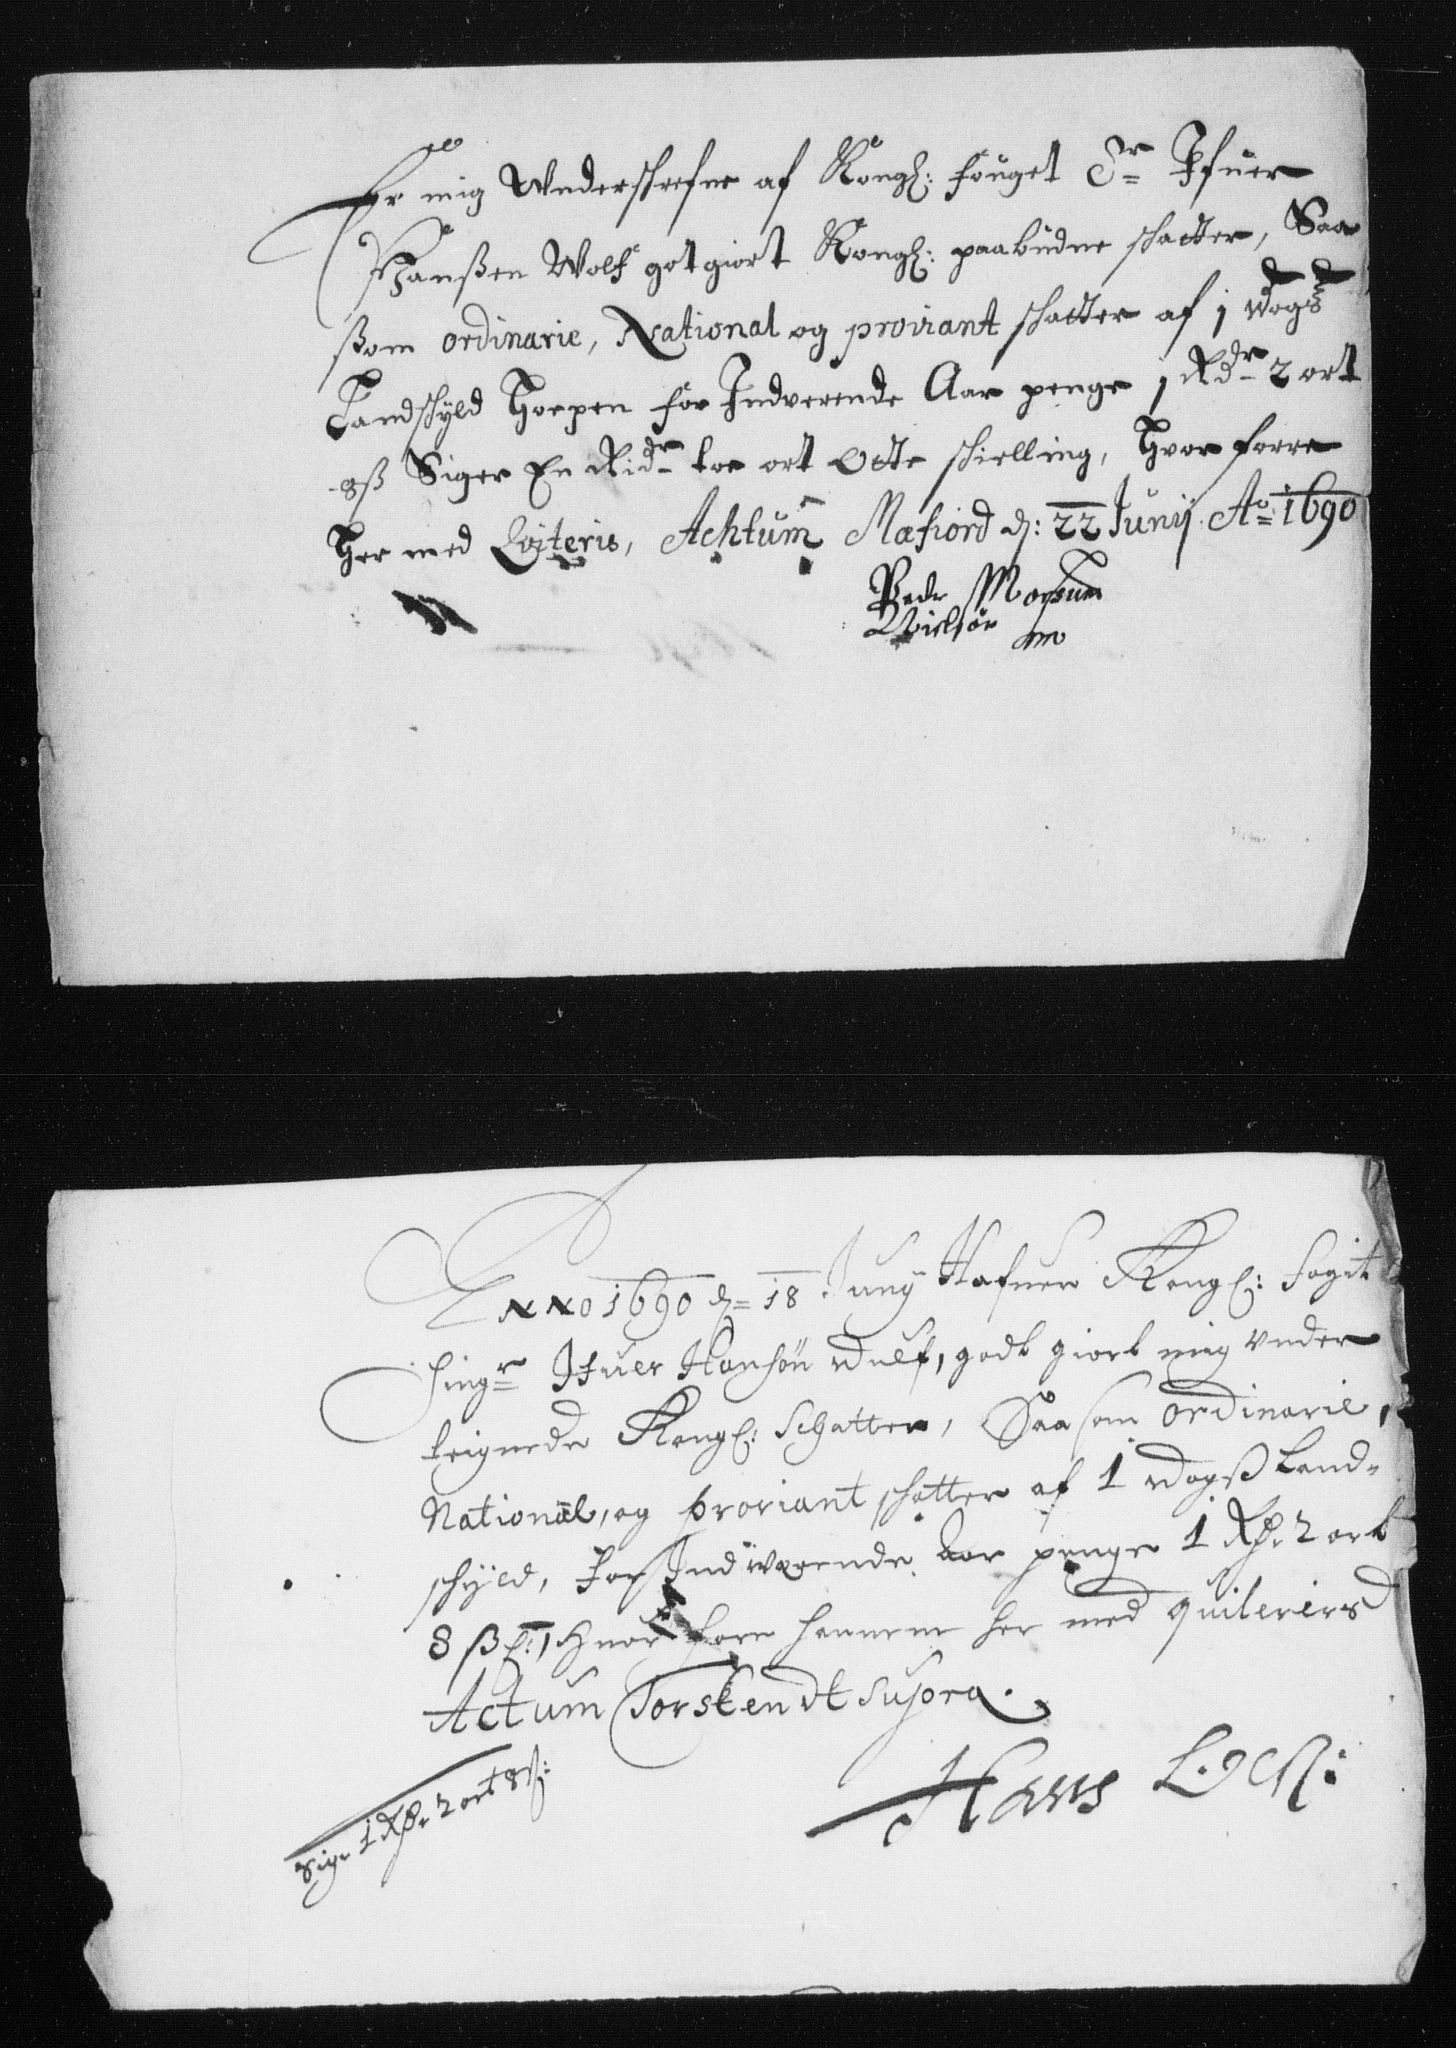 Er mig Wnderschrefne af Kongl: fouget Sr Ifuer
Hanßen Wolf got giort Kongl: paabudne schatter, Saa
ßom ordinarie, National og proviant schatter af 1 Wogs
Landschyld Hoepen for Indverende Aar penge 1 Rdr 2 ort
8ß Siger En Ridr toe ort Otte schielling, Hvor forre
Her med Qviteris, Achtum Mefiord d: 22 Junij Ao 1690
Peder Morsum
Nielsøn
Anno 1690 d= 18 Junij Hafuer Kongl: fogit
Singr Ifuer Hansøn Wulf, godt giort mig vnder
teignede Kongl: Schatter, Saa som ordinarie,
National, og proviant schatter af 1 Wogß Land-
schyld, for Indwærende Aar penge 1 Rdr 2 ort
8 ßl:, Huor fore hannem her med quiterirs
Actum Torsken Vt Supra.
Hans
Sigr 1 Rdr 2 ort 8ß: